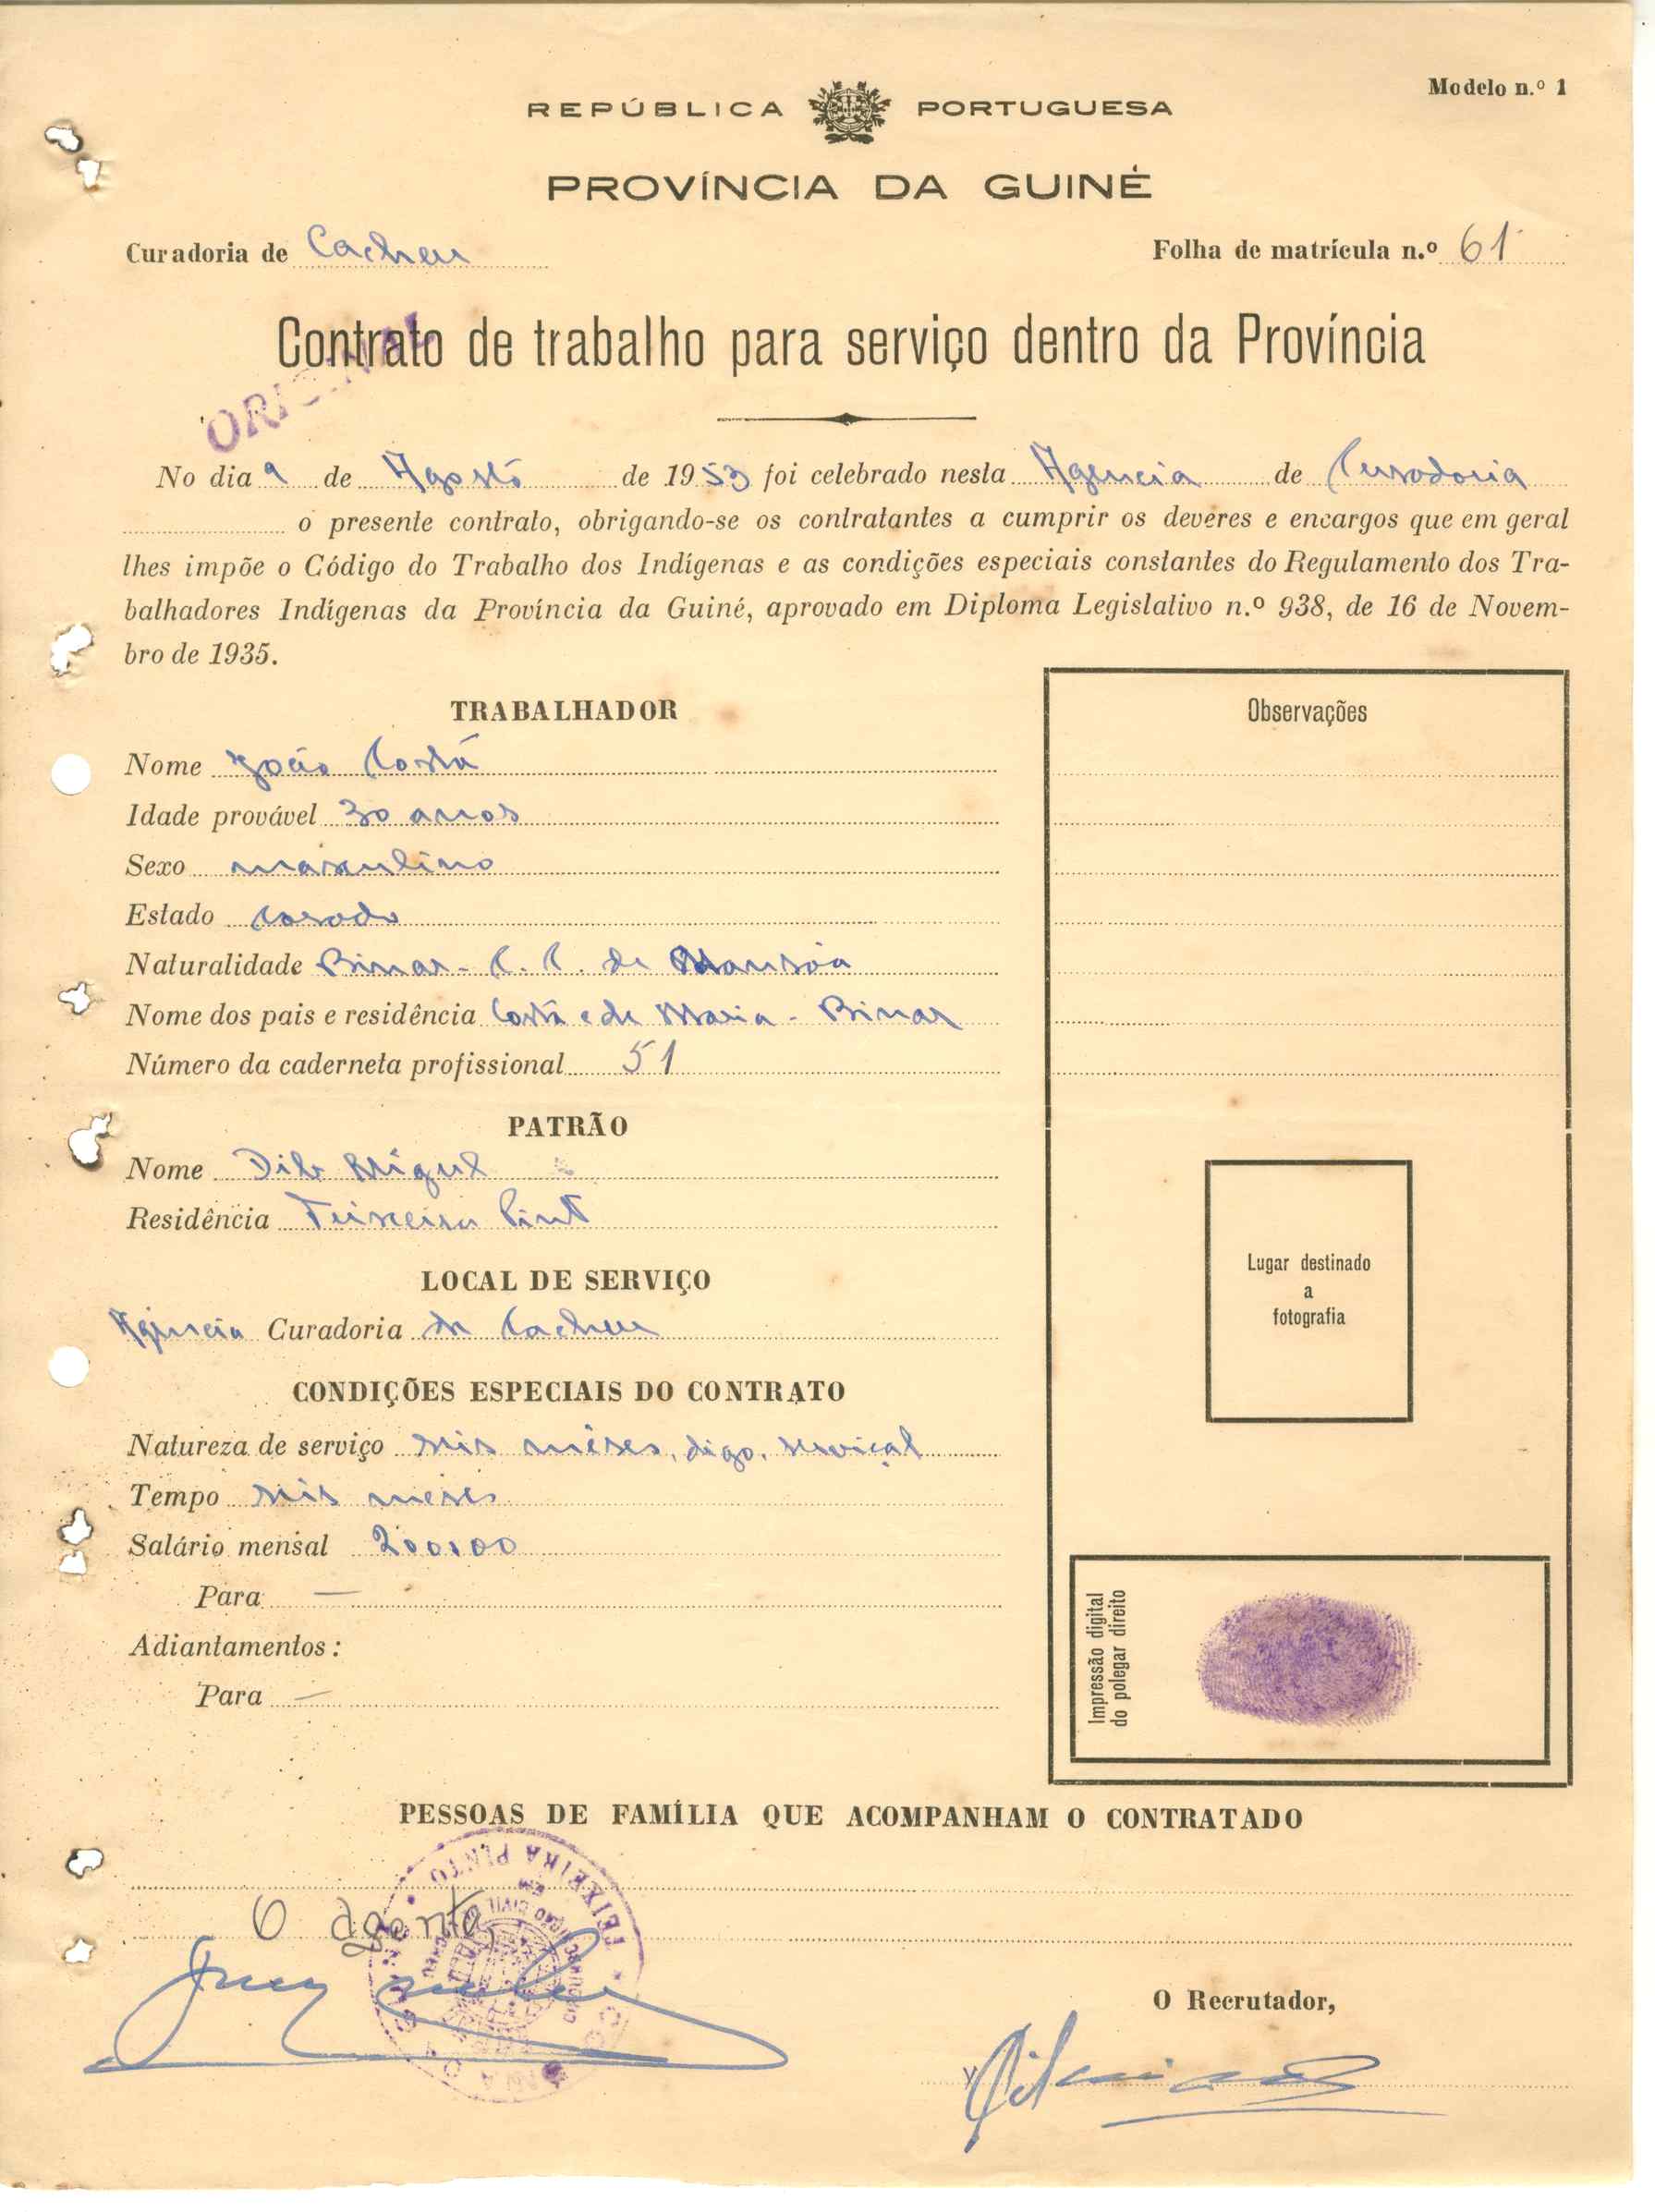 Modelo n.º 1
REPÚBLICA PORTUGUESA
PROVÍNCIA DA GUINÉ
Curadoria de Cacheu
Folha de matrícula n.º 61
Contrato de trabalho para serviço dentro da Província
ORIGINAL
No dia 9 de Agosto de 1953 foi celebrado nesta Agencia de Curadoria
o presente contrato, obrigando-se os contratantes a cumprir os deveres e encargos que em geral
lhes impõe o Código do Trabalho dos Indígenas e as condições especiais constantes do Regulamento dos Tra-
balhadores Indígenas da Província da Guiné, aprovado em Diploma Legislativo n.º 938, de 16 de Novem-
bro de 1935.
TRABALHADOR
Nome João Costá
Idade provável 30 anos
Sexo masculino
Estado Casado
Naturalidade Binar - C. C. de Mansôa
Nome dos pais e residência Costá e de Maria - Binar
Número da caderneta profissional 51
PATRÃO
Nome Dib Miguel
Residência Teixeira Pinto
LOCAL DE SERVIÇO
Agencia Curadoria de Cacheu
CONDIÇÕES ESPECIAIS DO CONTRATO
Natureza de serviço seis mêses, digo, serviçal
Tempo seis meses
Salário mensal 200$00
Para —
Adiantamentos:
Para —
Observações
Lugar destinado
a
fotografia
Impressão digital
do polegar direito
PESSOAS DE FAMÍLIA QUE ACOMPANHAM O CONTRATADO
O agente,
TEIXEIRA PINTO
O Recrutador,